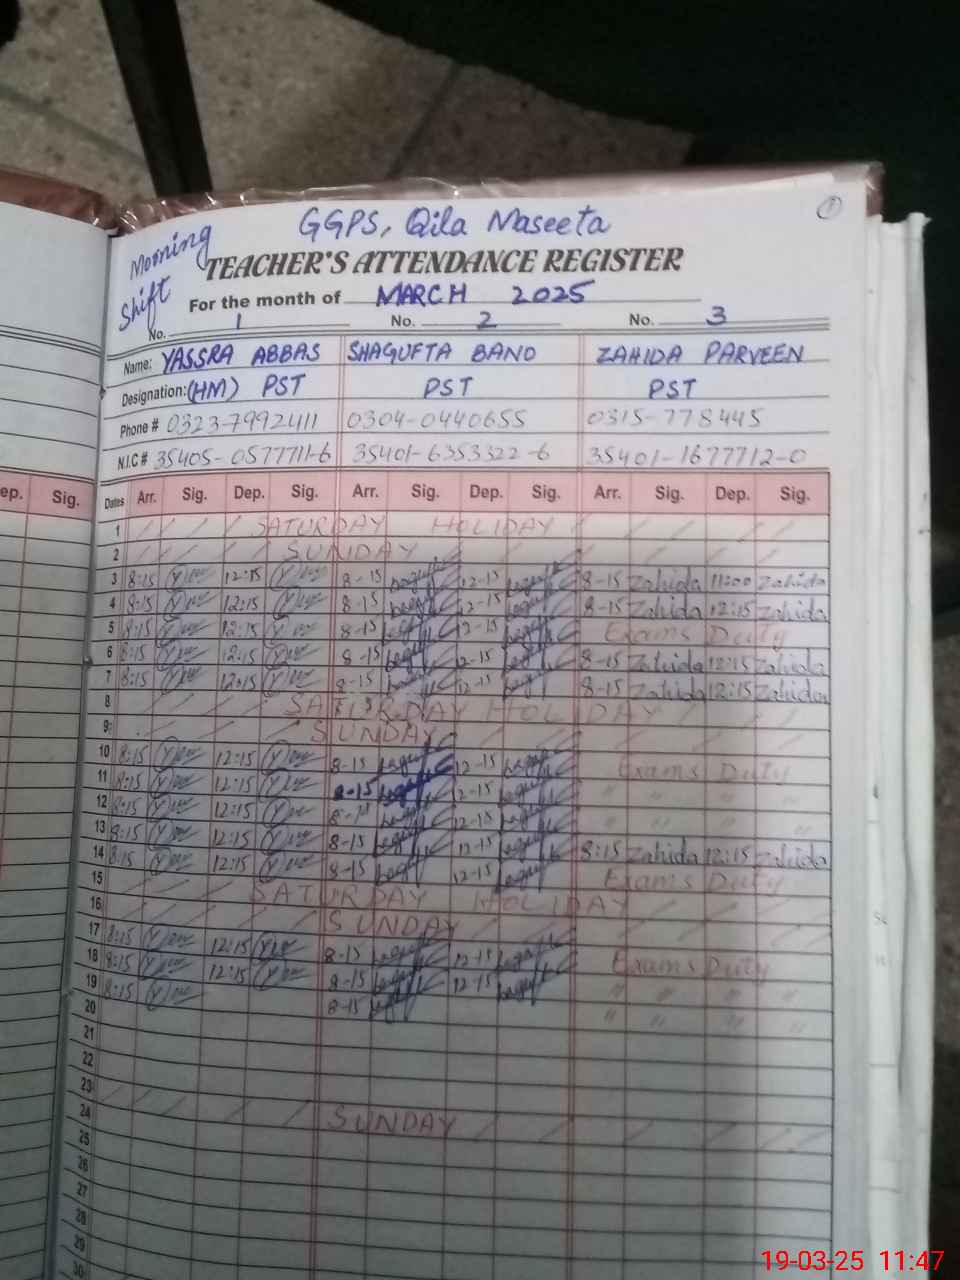 GGPS, Qila Maseeta
Morning Shift
TEACHER'S ATTENDANCE REGISTER
For the month of MARCH 2025
No. 1 No. 2 No. 3
Name: YASSRA ABBAS SHAGUFTA BANO ZAHIDA PARVEEN
Designation: (HM) PST PST PST
Phone # 0323-7992411 0304-0440655 0315-778445
N.I.C # 35405-0577711-6 35401-6353322-6 35401-1677712-0
ep. Sig. Dates Arr. Sig. Dep. Sig. Arr. Sig. Dep. Sig. Arr. Sig. Dep. Sig.
1 SATURDAY HOLIDAY
2 SUNDAY
3 8:15 12:15 8-15 12-15 8-15 Zahida 11:00 Zahida
4 8:15 12:15 8-15 12-15 8-15 Zahida 12:15 Zahida
5 8:15 12:15 8-15 12-15 Exams Duty
6 8:15 12:15 8-15 12-15 8-15 Zahida 12:15 Zahida
7 8:15 12:15 8-15 12-15 8-15 Zahida 12:15 Zahida
8 SATURDAY HOLIDAY
9 SUNDAY
10 8:15 12:15 8-15 12-15 Exams Duty
11 8:15 12:15 8-15 12-15 " " " "
12 8:15 12:15 12-15 " " " "
13 8:15 12:15 8-15 12-15 8:15 Zahida 12:15 Zahida
14 8:15 12:15 8-15 12-15 Exams Duty
15 SATURDAY HOLIDAY
16 SUNDAY
17 8:15 12:15 8-15 12-15 Exams Duty
18 8:15 12:15 8-15 12-15 " " " "
19 8:15 8-15 " " " "
20
21
22
23 SUNDAY
24
25
26
27
28
29
30
19-03-25 11:47